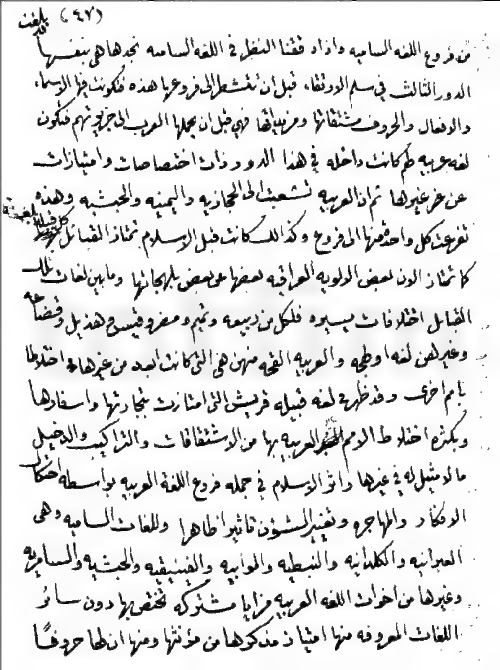 (٤٧) بلغت
من فروع اللغه الساميه واذا دققنا النظر في اللغه الساميه نجدها هي بنفسها
الدور الثالث في سلم الارتقاء، قبل ان تنشطر الى فروعها هذه فتكونت فيها الاسماء
والافعال والحروف مشتقاتها ومزيداتها فهي قبل ان يحملها العرب الى جزيرتهم فتكون
لغه عربيه لهم كانت داخله في هذا الدور ذات اختصاصات وامتيازات
عن غيرها ثم ان العربيه تشعبت الى الحجازيه واليمنيه والحبشيه وهذه
تفرعت كل واحدة منها الى فروع وكذالك كانت قبل الاسلام تمتاز القبائل بلغه قبيلة
كما تمتاز الان بعض الالويه العراقيه بعضها على بعض بلهجاتها وما بين لغات تلك
القبائل اختلافات يسيره فلكل من ربيعه وتميم ومضر وقيس وهذيل وقضاعه
وغيرهن لغه او لهجه والعربيه القحه منهن هي التي كانت ابعد من غيرها اختلاطا
بامم اخرى وقد ظهر في لغه قبيله قريش التي امتازت بتجارتها واسفارها
وبكثره اختلاط الامم العربيه بها من الاشتقاقات والتراكيب والدخيل
مالا مثيل له في غيرها واثر الاسلام في جمله فروع اللغة العربيه بواسطه احتكاك
الافكار والمهاجره وتغيير الشؤن تاثيرا ظاهرا وللغات الساميه وهي
العبرانيه والكلدانيه والنبطيه والموابيه والفينيقيه والحبشيه والسامريه
وغيرها من اخوات اللغه العربيه مزايا مشتركه تختص بها دون سائر
اللغات المعروفه منها امتياز مذكرها من مؤنثها ومنها ان لها حروفا